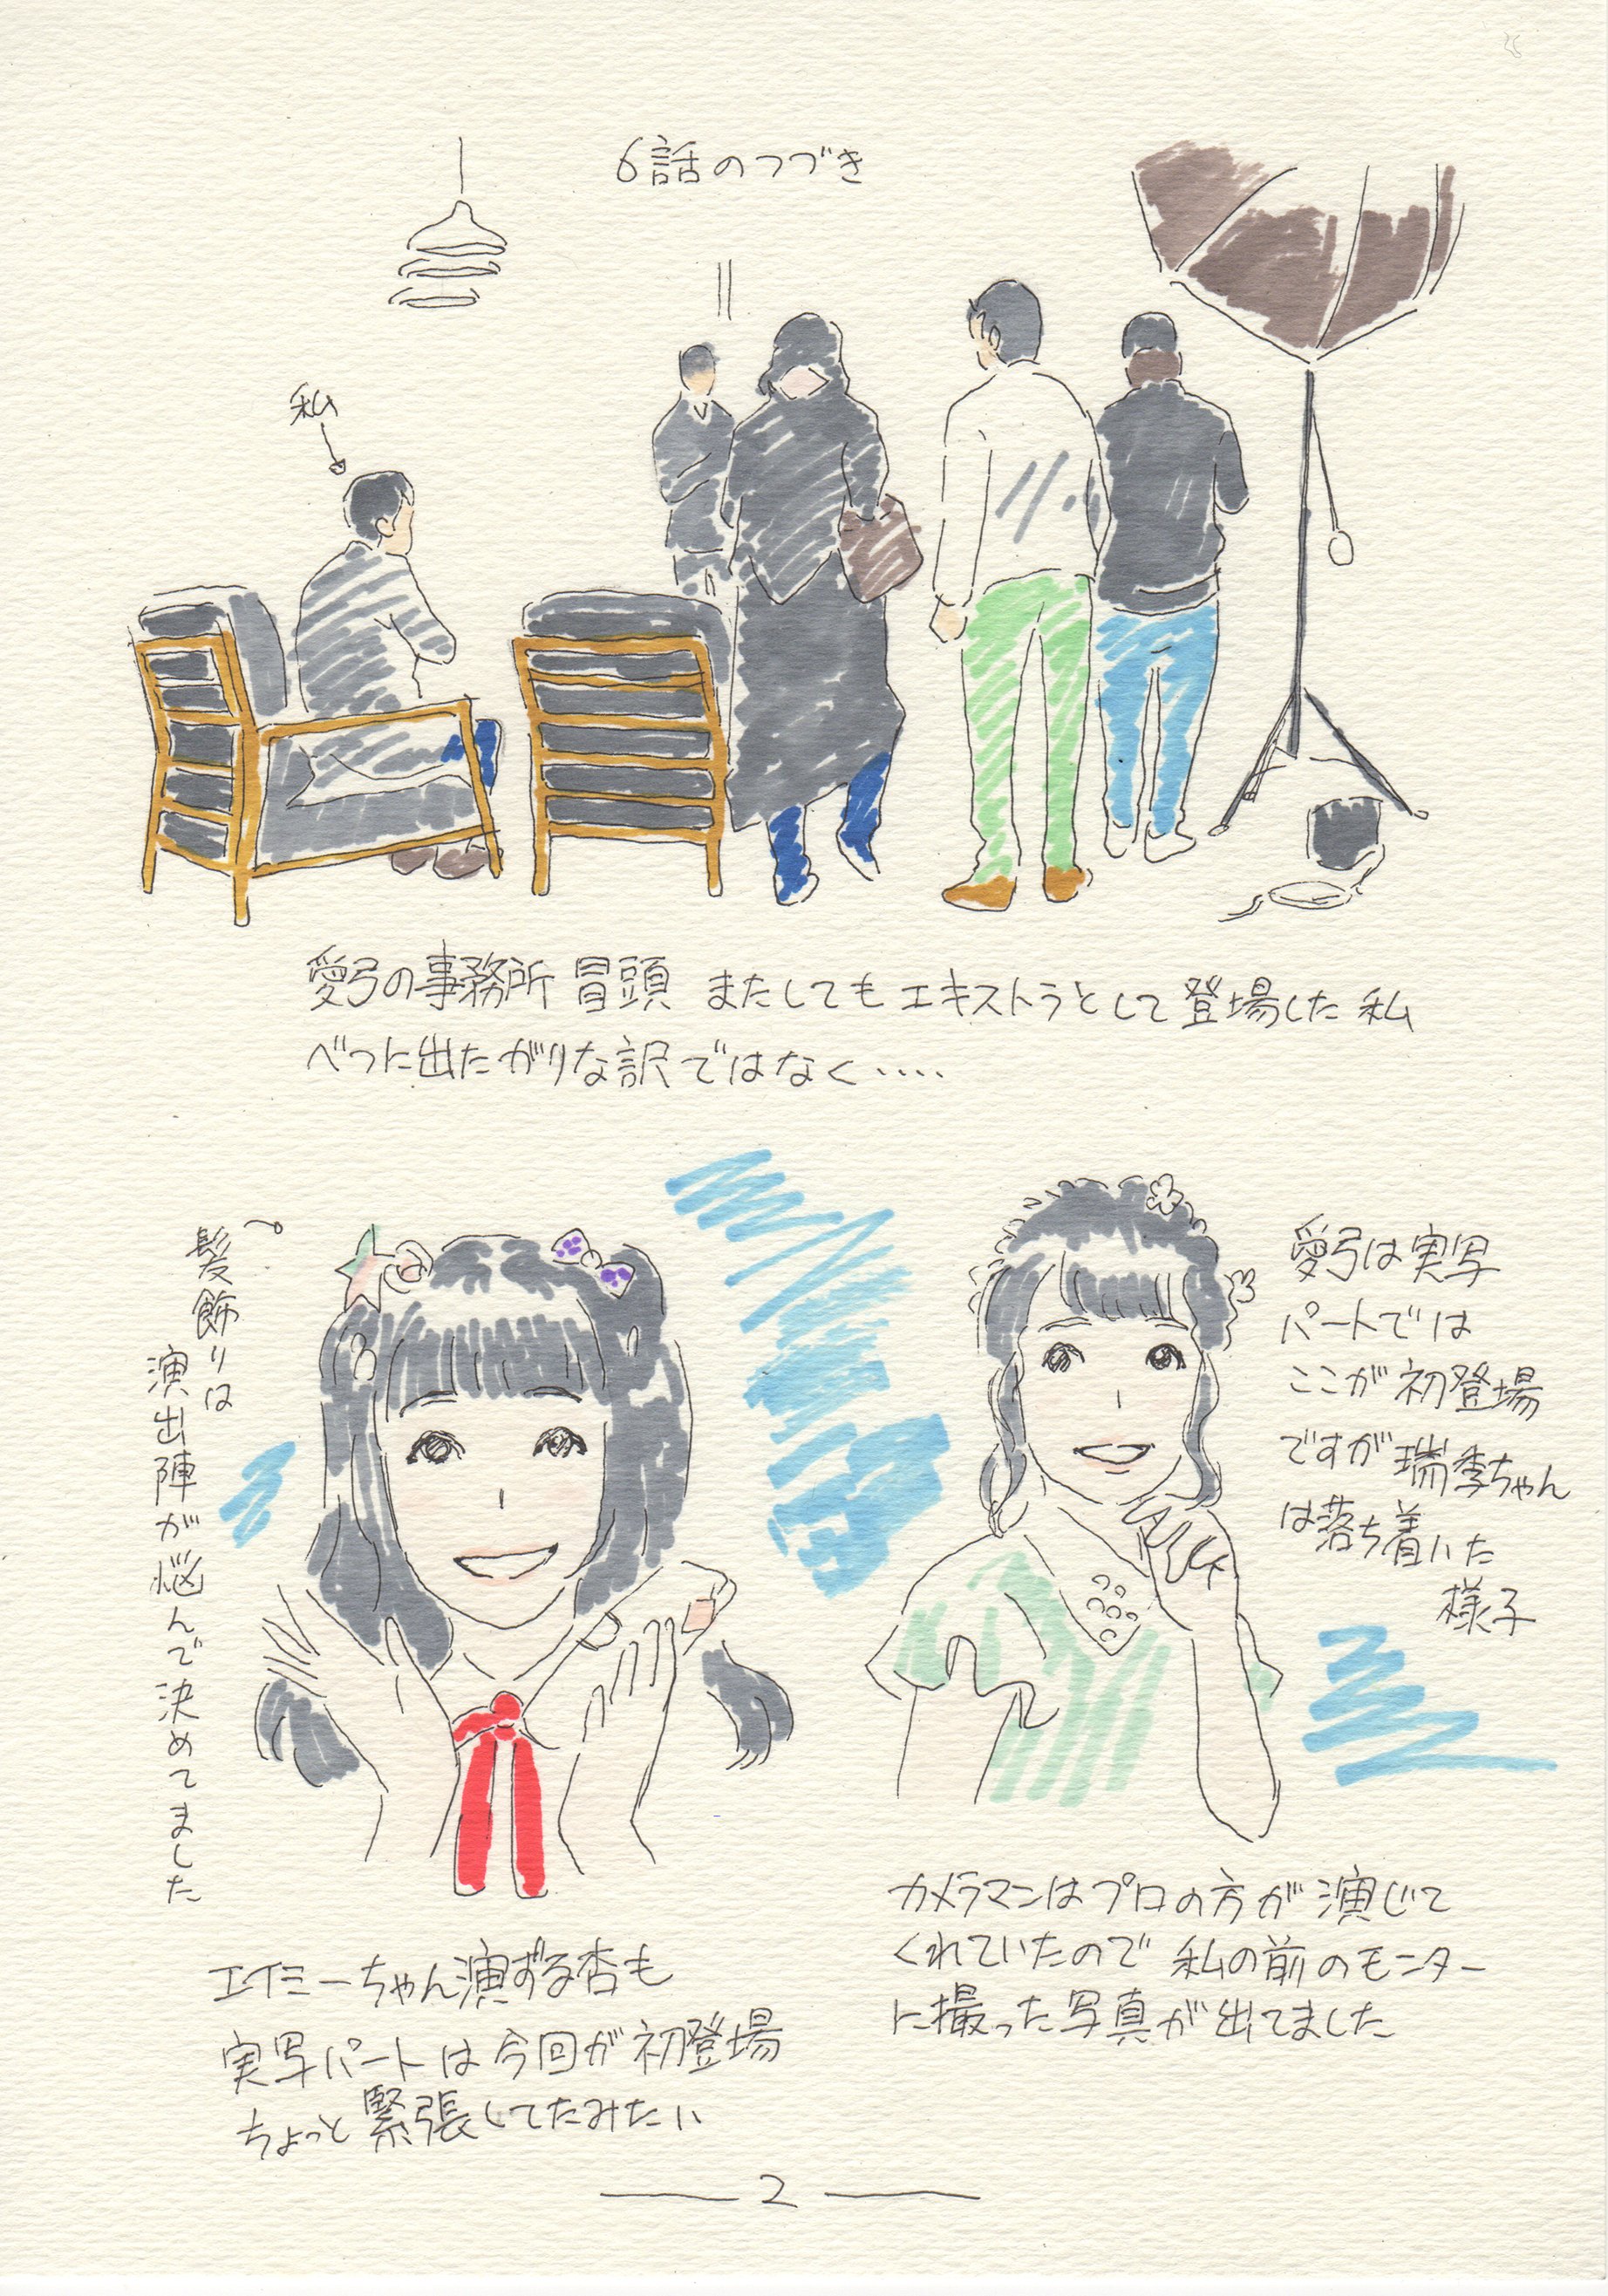 6話のつづき
私
愛弓の事務所 冒頭 またしても エキストラとして 登場した 私
べつに出たがりな訳ではなく‥‥
髪飾りは
演出陣が悩んで決めてました
愛弓は実写
パートでは
ここが初登場
ですが瑞季ちゃん
は落ち着いた
様子
カメラマンはプロの方が演じて
くれていたので 私の前のモニター
に撮った写真が出てました
エイミーちゃん演ずる杏も
実写パートは今回が初登場
ちょっと緊張してたみたい
2